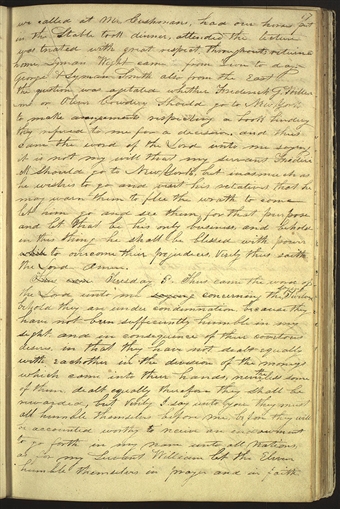 we called at Mr. Cushmans, had our horses put
in the Stable took dinner, attended the lecture
was treated with great respect throughout, returned
home Lyman Wight came from Zion to day,
George & Lyman Smith also from the East
the question was agitated whether Frederick G. Williams
or Oliver Cowdery should go to New York
to make arangements respecting a book bindery
they refered to me for a decision, and thus
came the word of the Lord unto me saying
it is not my will that my servant Frederick
should go to New York, but inasmuch as
he wishes to go and visit his relatives that he
may warn them to flee the wrath to come
let him go and see them, for that purpose
and let that be his only business, and behold
in this thing he shall be blessed with power
to overcome their prejudices, Verily thus saith
the Lord Amen.
Thus came the word of
the Lord unto me concerning the Twelve
behold they are under condemnation because they
have not been sufficiently humble in my
sight and in consequence of their covetous
desires, in that they have not dealt equally
with each other in the division of the moneys
which came into their hands, nevertheless some
of them dealt equally therefore they shall be
rewarded, but Verily I say unto you they must
all humble themselves before me, before they will
be accounted worthy to receive an endowment
to go forth in my name unto all Nations,
as for my Servant William let the Eleven
humble themselves in prayer and in faith